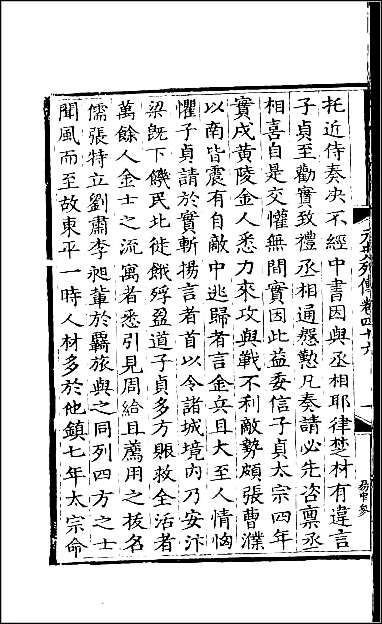 托近侍奏决不經中書因與丞相耶律楚材有違言
子貞至勸實致禮丞相通慇懃凡奏請必先咨禀丞
相喜自是交懽無間實因此益委信子貞太宗四年
實戍黄陵金人悉力來攻與戰不利敵勢頗張曹濮
以南皆震有自敵中逃歸者言金兵且大至人情恟
懼子貞請於實斬揚言者首以令諸城境内乃安汴
梁既下饑民北徙餓殍盈道子貞多方賑救全活者
萬餘人金士之流寓者悉引見周給且薦用之拔名
儒張特立劉肅李昶輩於羈旅與之同列四方之士
聞風而至故東平一時人材多於他鎮七年太宗命